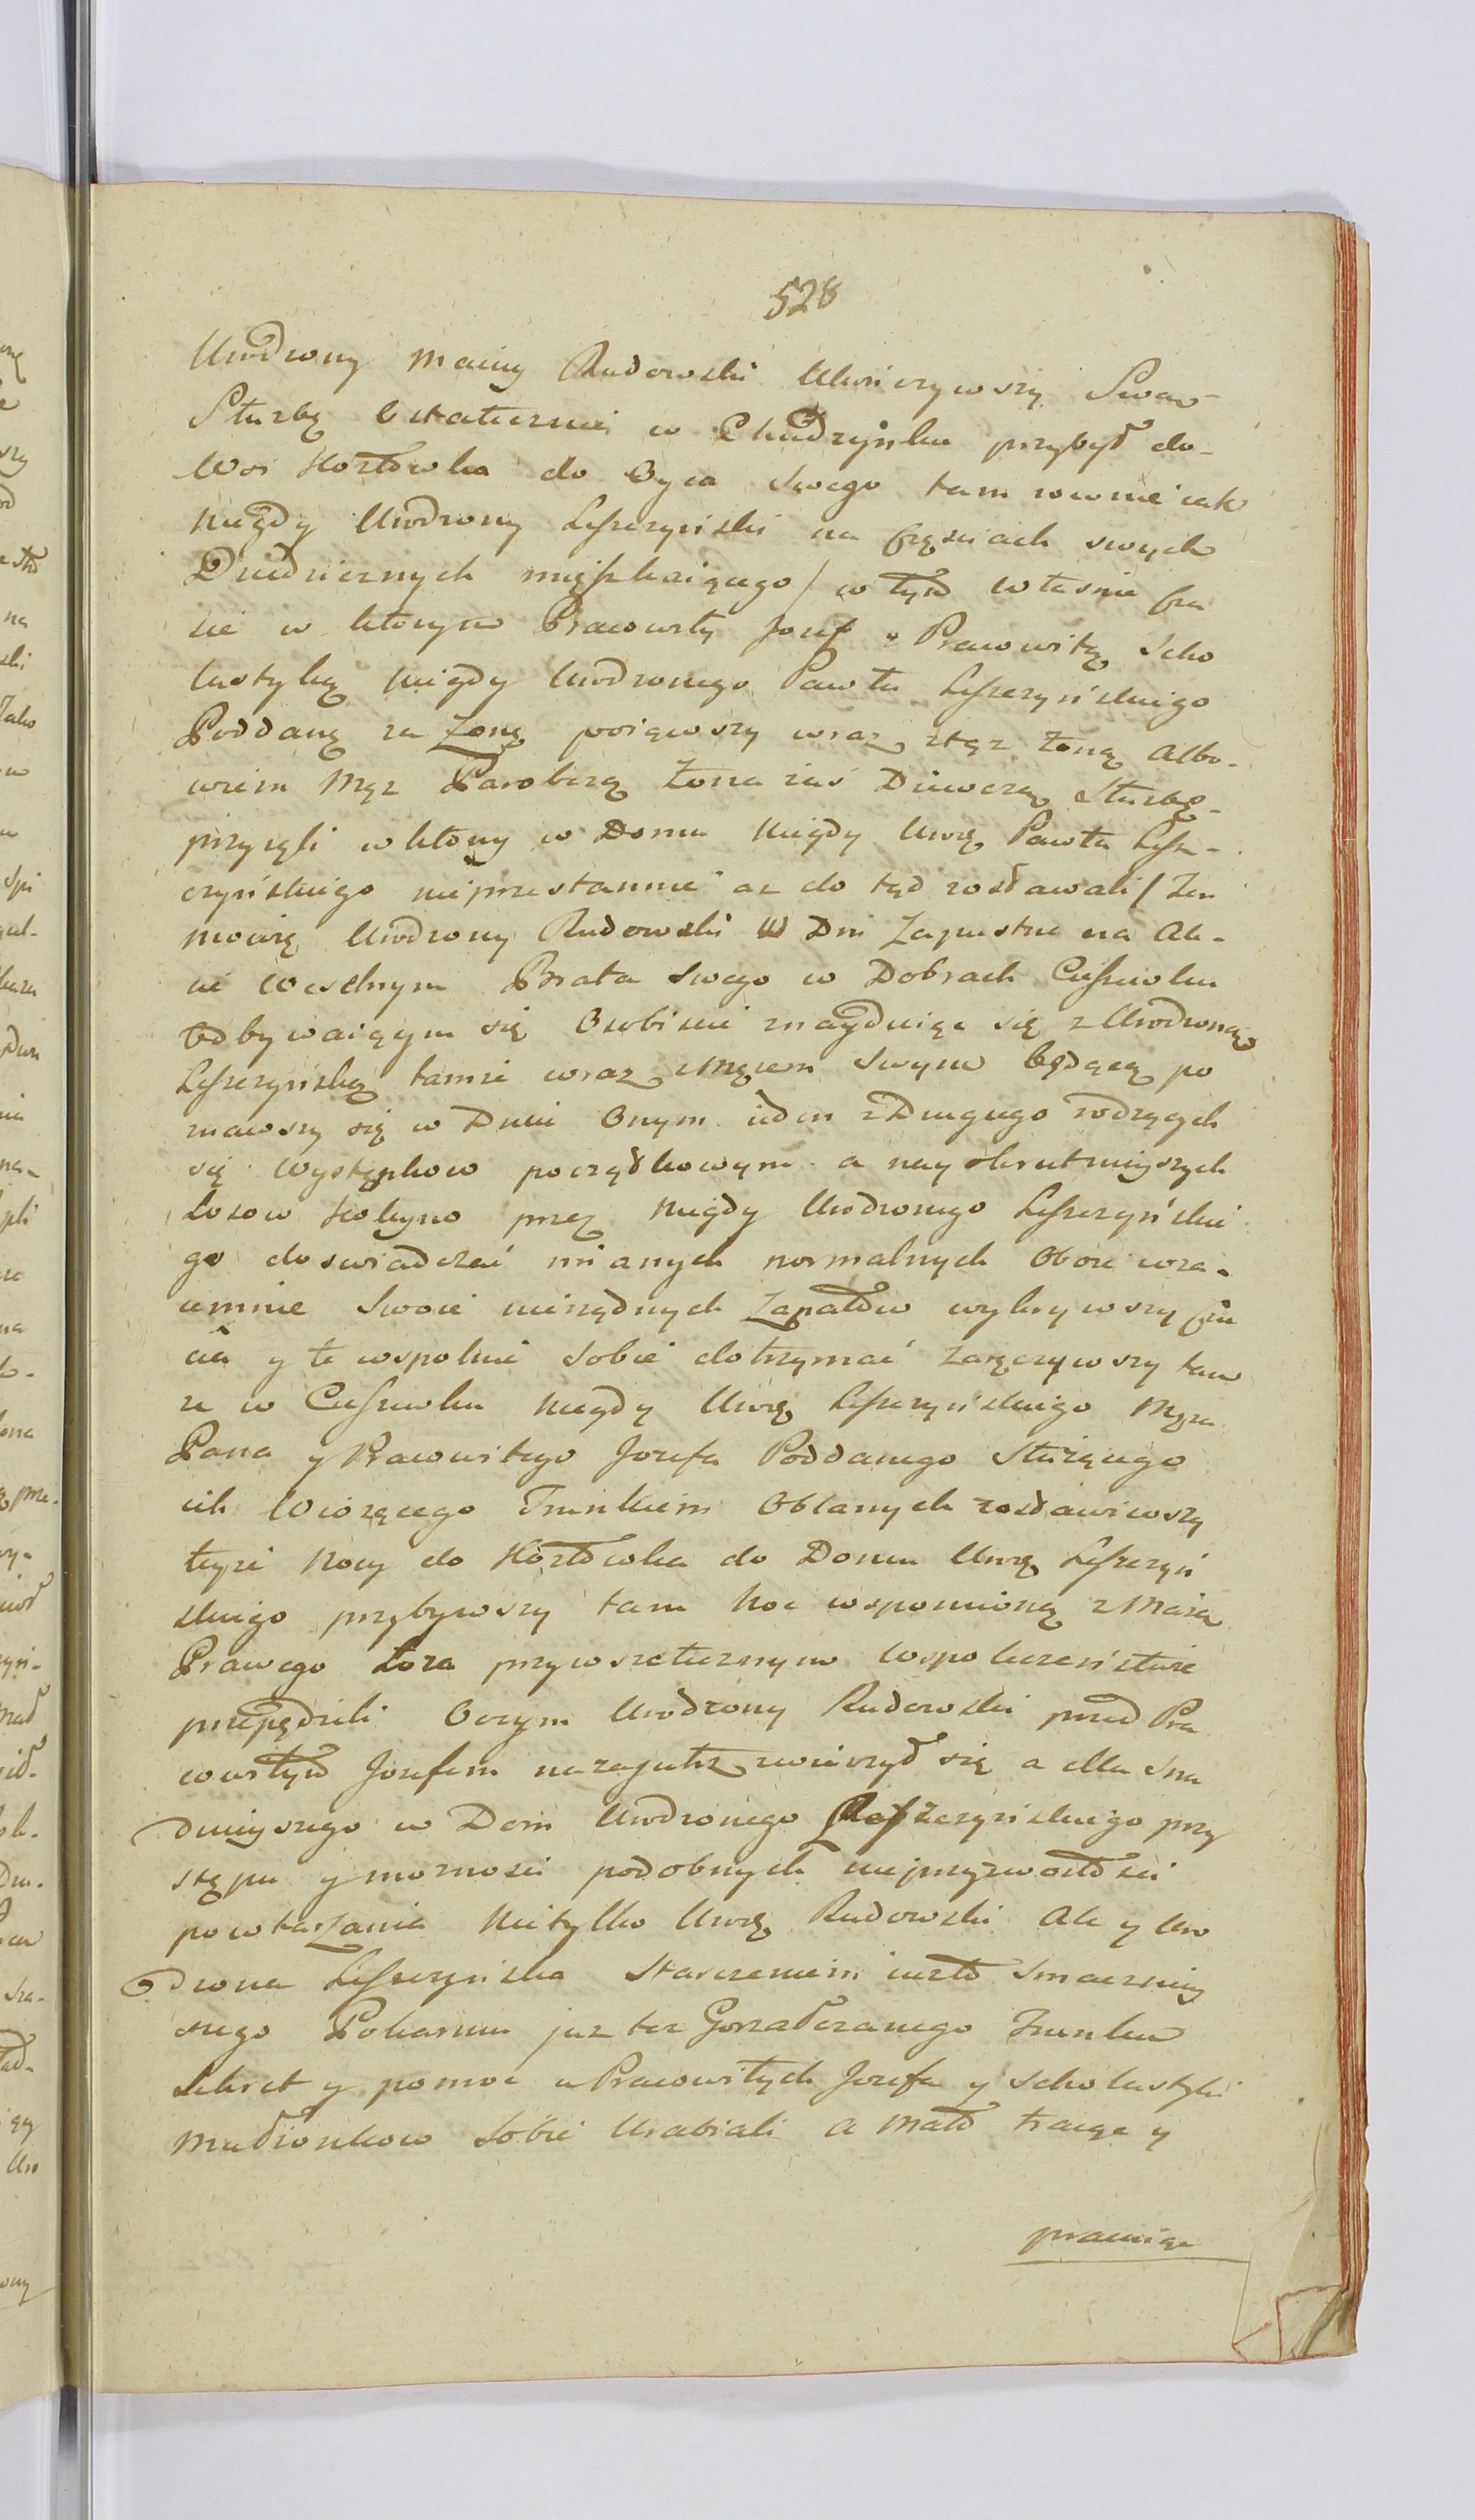 528
Urodzony Maciey Rudowski Ukończywszy Swow
Służbę w Chudzyńku przybył do-
Wsi Kozłowka do Oyca swego tam rownie iak
niegdy Urodzony Leszczyński na Częsciach swych
Dziedzicznych mięszkaiącego / w tym własnie Cza
sie w ktorym Pracowity Jozef Pracowitą Scho
lastykę niegdy Urodzonego Pawła Leszczyńskiego
Poddaną za Zonę poiąwszy wraz ztąż Zoną Albo-
wiem Mąż Parobczą Zona zaś Dziewczą Służbę-
przyięli w ktory w Domu niegdy Urzę Pawła Lesz-
czyńskiego nieprzestannie az do tąd zosławali / Ten
mowię Urodzony Rudowski W Dni Zapustne na Ak-
cie Weselnym Brata swego w Dobrach
odbywaiącym się Osobiscie znayduiąc się z Urodzoną
Leszczyńską tamże wraz zMężem swym będącą po
znawszy się w Dniu Onym ieden zDrugiego rodzących
się Występkow początkowym a nayokrutnieyszych
Losow Kolyno przez niegdy Urodzonego Leszczyńskie
go doswiadczeń mianych normalnych Oboie wza-
iemnie Swoie nierządnych Zapałow wykrywszy Chu
cia y te wspolnie sobie dotrzymać zaręczywszy tam
że w niegdy Urzę Leszczyńskiego Męża
Pana y Pracowitego Jozefa Poddanego Służącego
ich Wiozącego Trunkiem Oblanych zosławiwszy
teyże Nocy do Kozłowka do Domu Urzę Leszczyń
skiego przybywszy tam Noc wspomnioną z
Prawego Łoza przywszetecznym Wspołeczeństwie
przepędzili Oczym Urodzony Rudowski przed Pra
cowitym Jozefem nazajutrz zwierzył się a dla Sna
dnieyszego w Dom Urodzonego Leszczyńskiego przy
stępu y moznosci podobnych nieprzyzwoitosci
powtarzania Nietylko Urzę Rudowski Ale y Uro
dzona Leszczyńska Starczeniem iuzto Smacznie
szego Pokarmu juz tez Gorzałczanego Trunku
Sekret y pomoc u Pracowitych Jozefa y Scholastyki
Małzonkow Sobie Urabiali a Mało traiąc y
pracuiąc